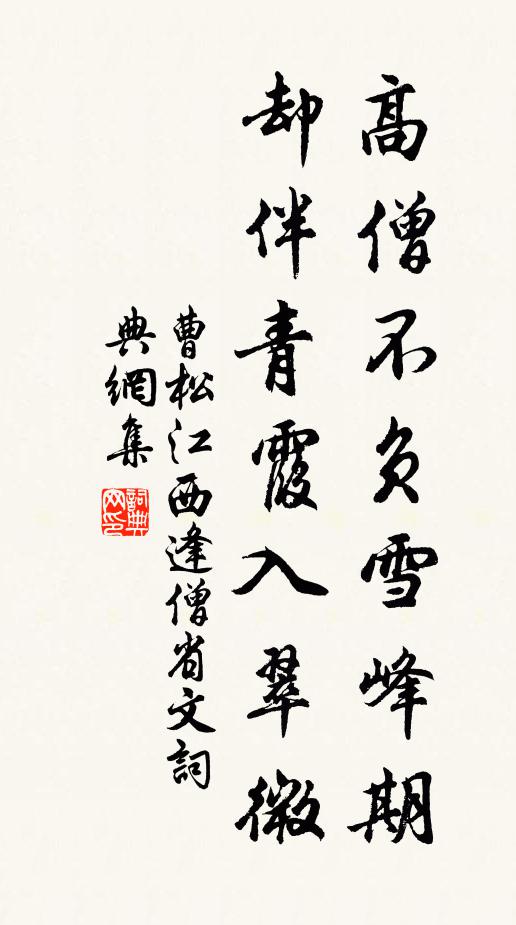 高僧不負雪峰期
却伴青霞入翠微
曹松江西逢僧省文詞
典網集
詞典
网印